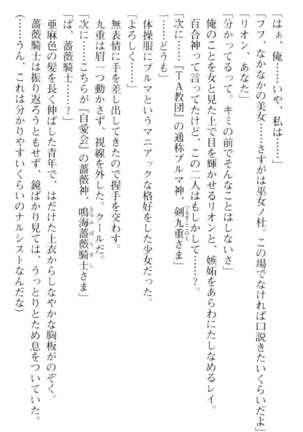 「はぁ、俺……いや、私は……」
「フフ、なかなかの美女……さすがは巫女ノ杜。この場でなければ口説きたいくらいだよ」
「リオン、あなた」
「分かってるって。キミの前でそんなことはしないさ」
俺のことを女と見た上で目を輝かせるリオンと、嫉妬をあらわにたしなめるレイ。
百合神って言ってたけど、この二人はもしかして……？
「次に……『ＴＡ教団』の通称ブルマ神、剣九重さま」
「……どうも」
体操服にブルマというマニアックな格好をした少女だった。
「よろしく……」
無表情に手を差し出してきたので握手を交わす。
九重は眉一つ動かさず、視線を外した。クールだな。
「次に……こちらが『自愛会』の薔薇神、鳴海薔薇騎士さま」
「ば、薔薇騎士……？」
亜麻色の髪を長く伸ばした青年で、はだけた上衣からしなやかな胸板がのぞく。
薔薇騎士は振り返ろうともせず、鏡ばかり見ては、うっとりとため息をついていた。
（……うん、これは分かりやすいくらいのナルシストなんだな）